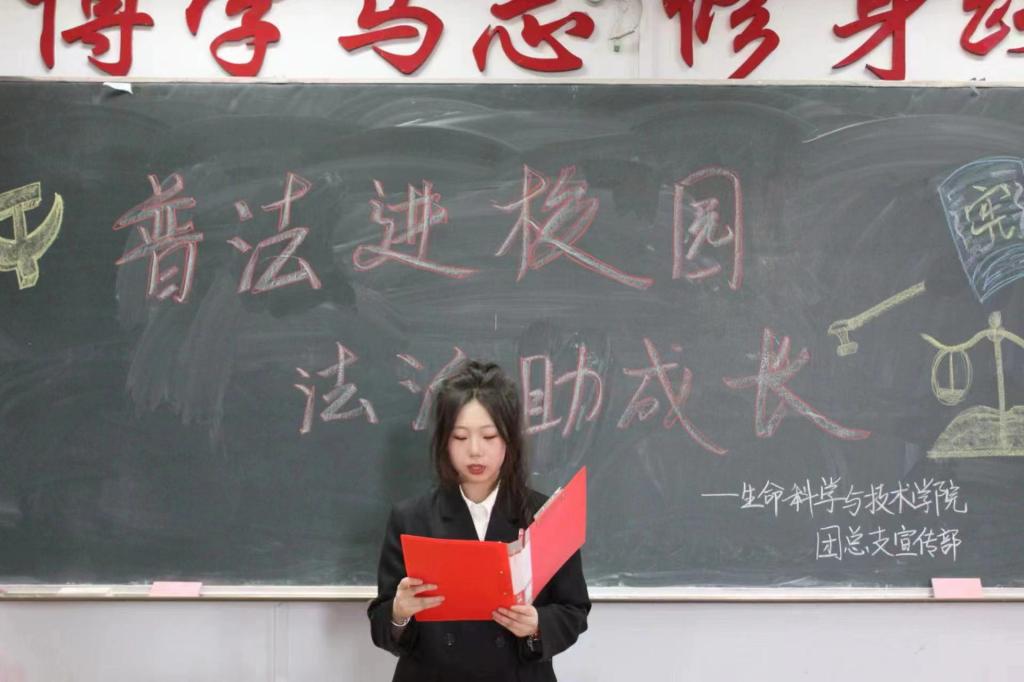 博学笃志修身
普法进校园
宪
法治助成长
—生命科学与技术学院
团总支宣传部